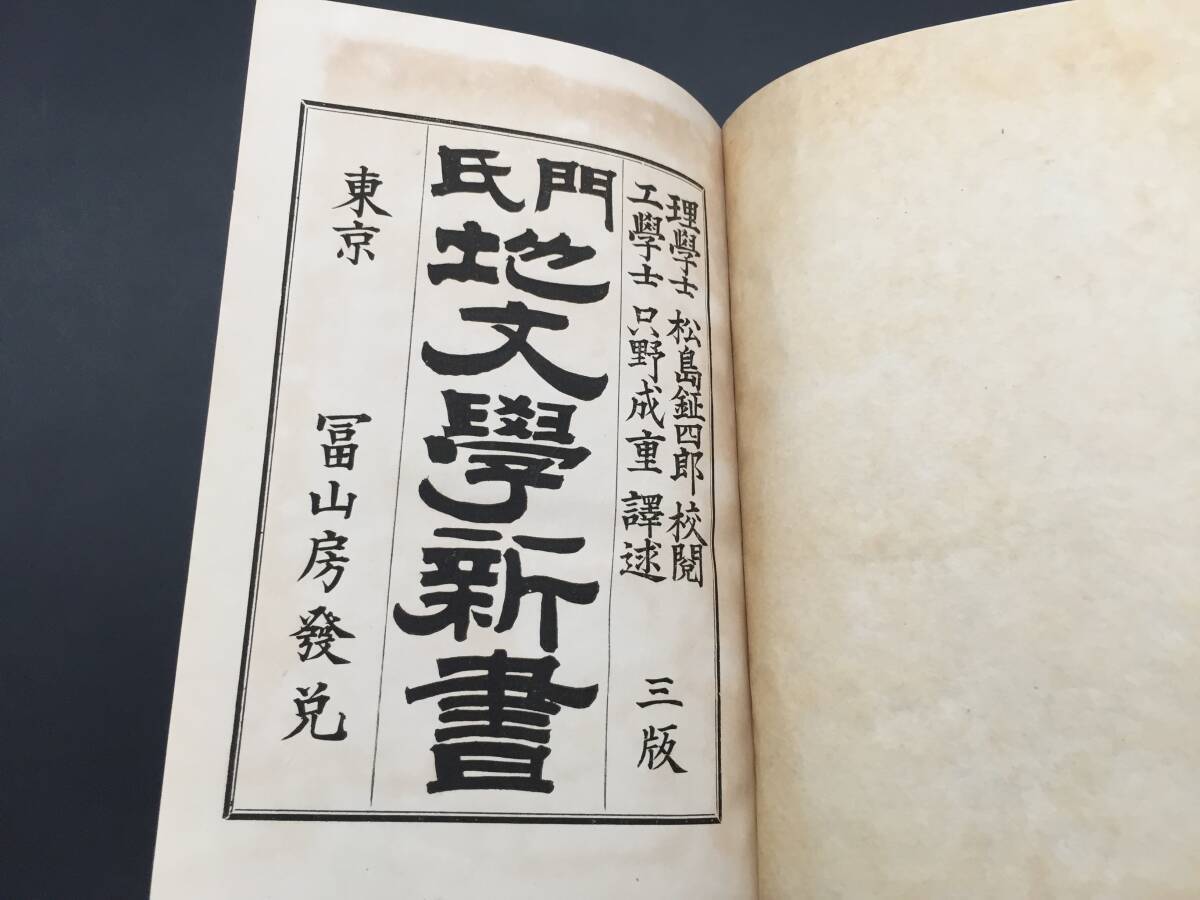 理學士 松島鉦四郎 校閱
工學士 只野成重 譯述
三版
門氏
地文學新書
東京 冨山房發兌